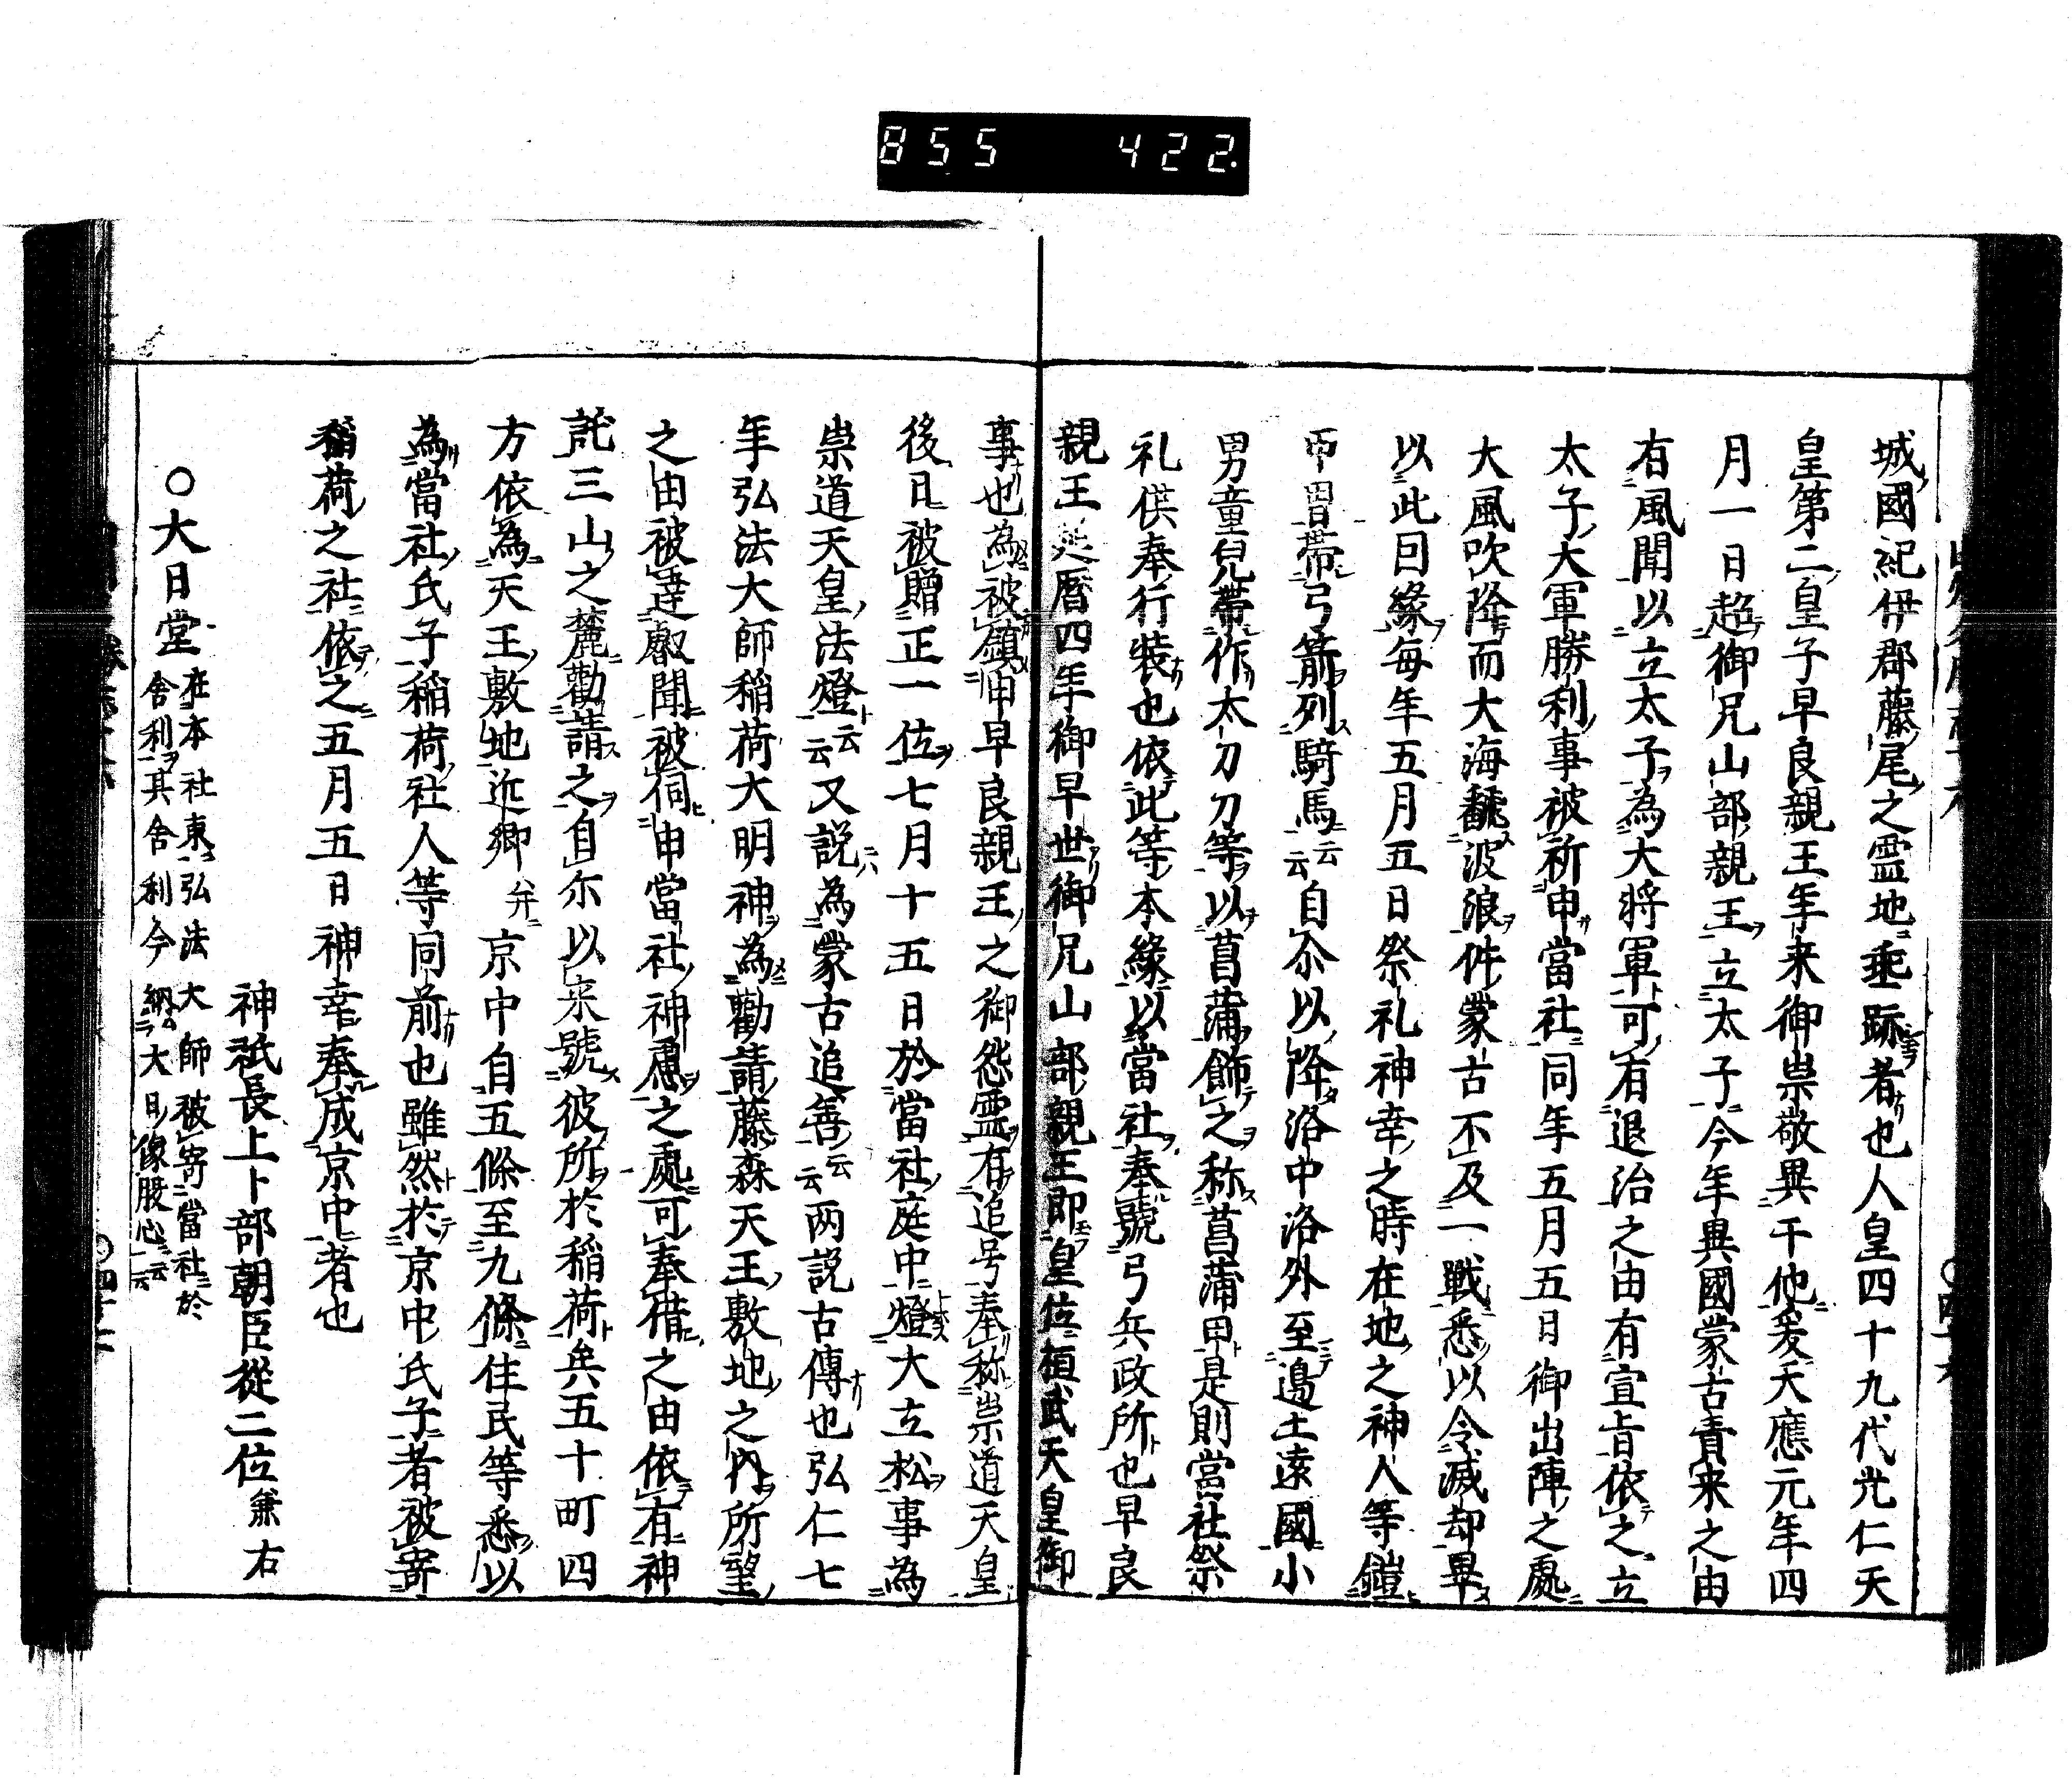 855 422.
城國紀伊郡藤尾之霊地垂跡者也人皇四十九代光仁天
皇第二皇子早良親王年来御崇敬異于他爰天應元年四
月一日超御兄山部親王立太子今年異國蒙古責来之由
有風聞以立太子為大将軍可有退治之由有宣旨依之立
太子大軍勝利事被祈申當社同年五月五日御出陣之處
大風吹降而大海飜波浪件蒙古不及一戰悉以令滅却畢
以此回緣每年五月五日祭礼神幸之時在地之神人等鎧
甲冑帶弓箭列騎馬云云自尒以降洛中洛外至邊土遠國小
男童兒帶作太刀刀等以菖蒲飾之称菖蒲甲是則當社祭
礼供奉行裝也依此等本緣以當社奉號弓兵政所也早良
親王延曆四年御早世御兄山部親王即皇位桓武天皇御
事也為被鎮申早良親王之御怨霊有追号奉称崇道天皇
後日被贈正一位七月十五日於當社庭中燈大立松事為
崇道天皇法燈云云又説為蒙古追善云云两説古傳也弘仁七
年弘法大師稲荷大明神為勸請藤森天王敷地之內所望
之由被達叡聞被伺申當社神慮之處可奉借之由依有神
託三山之麓勸請之自尓以来號彼所於稲荷矣五十町四
方依為天王敷地近鄉弁京中自五條至九條住民等悉以
為當社氏子稲荷社人等同前也雖然於京中氏子者被寄
稲荷之社依之五月五日神幸奉成京中者也
神祇長上卜部朝臣從二位兼右
○大日堂 在本社東弘法大師被寄當社於
舍利其舍利今納大日像股心云云